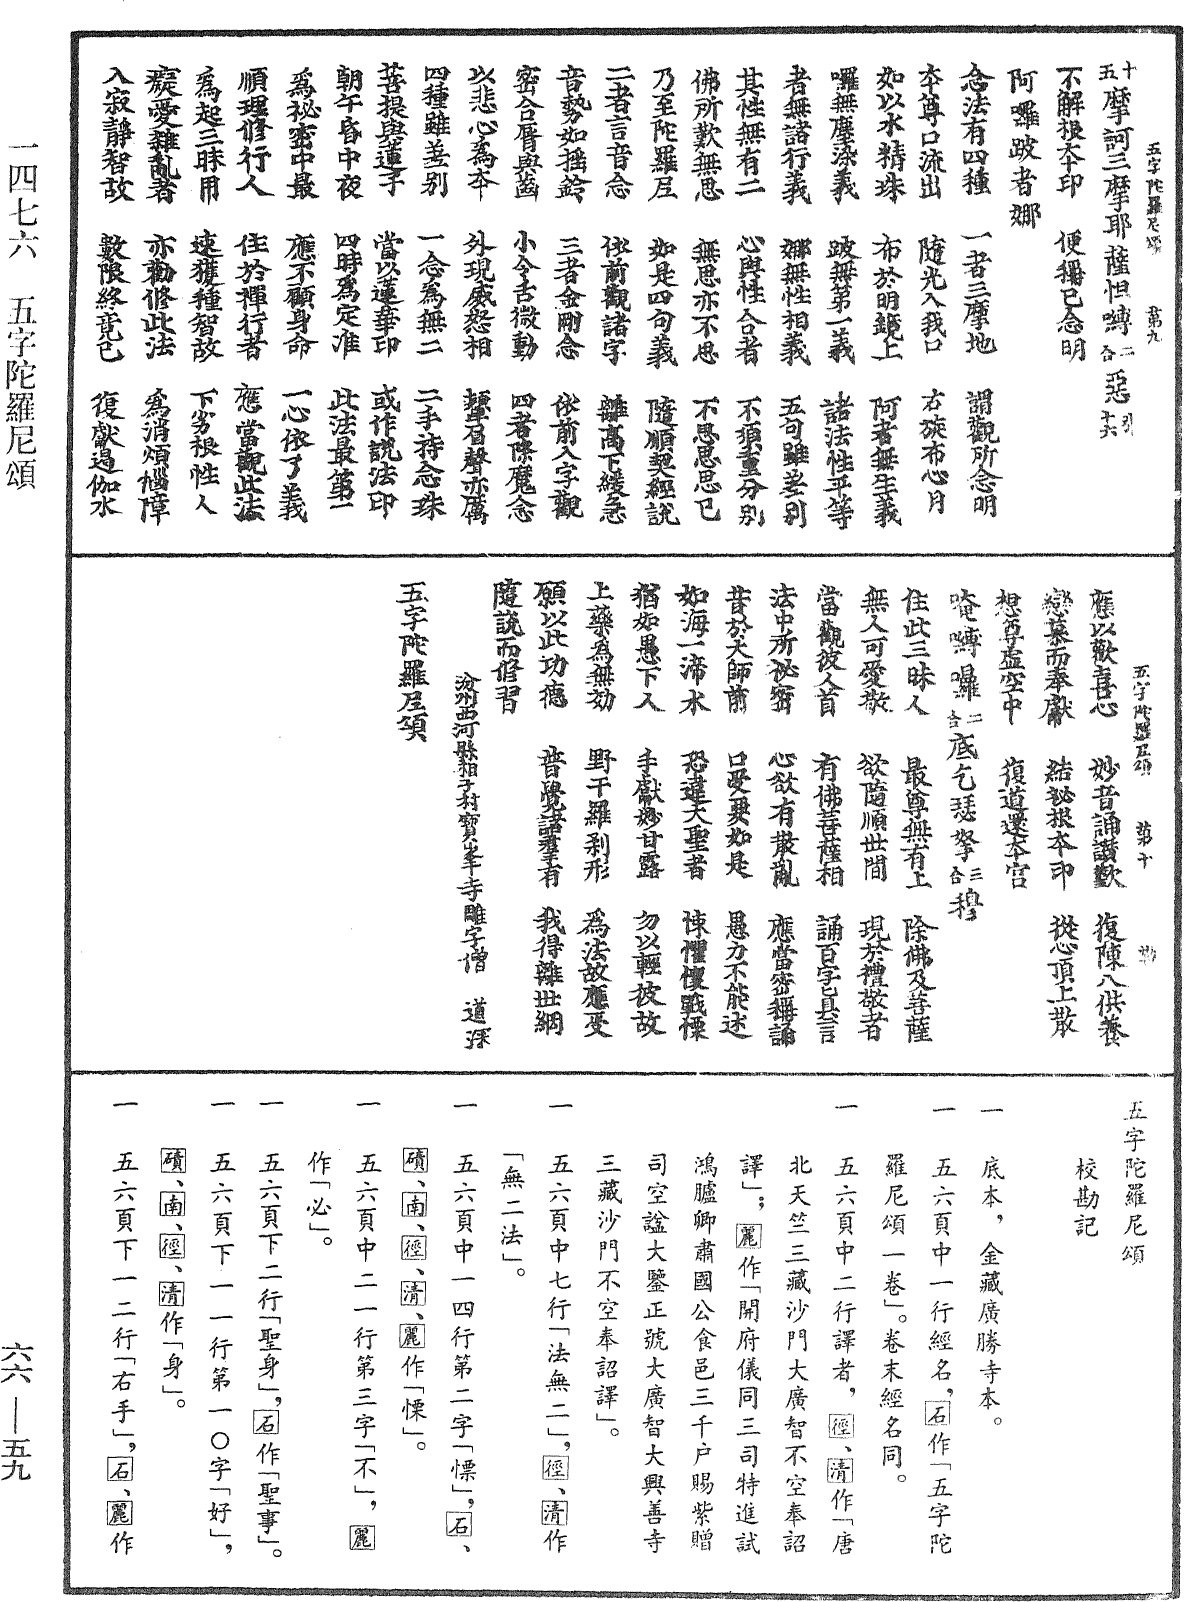 五字陀羅尼頌 第九
十五摩訶三摩耶薩怛嚩二合惡十六引
不解根本印 便稱已念明
阿囉跛者娜
念法有四種 一者三摩地 謂觀所念明
本尊口流出 隨光入我口 右旋布心月
如以水精珠 布於明鏡上 阿者無生義
囉無塵染義 跛無第一義 諸法性平等
者無諸行義 娜無性相義 五句雖差別
其性無有二 心與性合者 不須重分別
佛所歎無思 無思亦不思 不思思思已
乃至陀羅尼 如是四句義 隨順契經說
二者言音念 依前觀諸字 離高下緩急
音勢如搖鈴 三者金剛念 依前入字觀
密合脣與齒 小令舌微動 四者降魔念
以悲心為本 外現威怒相 顰眉聲亦厲
四種雖差別 一念為無二 二手持念珠
菩提與蓮子 當以蓮華印 或作說法印
朝午昏中夜 四時為定准 此法最第一
為祕密中最 應不顧身命 一心依了義
順理修行人 住於禪行者 應當觀此法
為起三昧用 速獲種智故 下劣根性人
癡愛雜亂者 亦勸修此法 為消煩惱障
入寂靜智故 數限終竟已 復獻遏伽水
五字陀羅尼頌 第十 勒
應以歡喜心 妙音誦讚歎 復陳八供養
戀慕而奉獻 結祕根本印 從心頂上散
想尊虛空中 復道還本宮
唵嚩囉二合底乞瑟拏三合穆
住此三昧人 最尊無有上 除佛及菩薩
無人可愛敬 欲隨順世間 現於禮敬者
當觀彼人首 有佛菩薩相 誦百字真言
法中所祕密 心欲有散亂 應當密稱誦
昔於大師前 口受要如是 愚力不能述
如海一渧水 恐違大聖者 悚懼懷戰慄
猶如愚下人 手獻妙甘露 勿以輕彼故
上藥為無効 野干羅剎形 為法故應受
願以此功德 普覺諸羣有 我得離世網
隨說而修習
汾州西河縣相子村寶峯寺雕字僧 道深
五字陀羅尼頌
五字陀羅尼頌
校勘記
一 底本，金藏廣勝寺本。
一 五六頁中一行經名，石作「五字陀
羅尼頌一卷」。卷末經名同。
一 五六頁中二行譯者，徑、清作「唐
北天竺三藏沙門大廣智不空奉詔
譯」；麗作「開府儀同三司特進試
鴻臚卿肅國公食邑三千户賜紫贈
司空謚大鑒正號大廣智大興善寺
三藏沙門不空奉詔譯」。
一 五六頁中七行「法無二」，徑、清作
「無二法」。
一 五六頁中一四行第二字「慓」，石、
磧、南、徑、清、麗作「慄」。
一 五六頁中二一行第三字「不」，麗
作「必」。
一 五六頁下二行「聖身」，石作「聖事」。
一 五六頁下一一行第一〇字「好」，
磧、南、徑、清作「身」。
一 五六頁下一二行「右手」，石、麗作
一四七六 五字陀羅尼頌
六六—五九